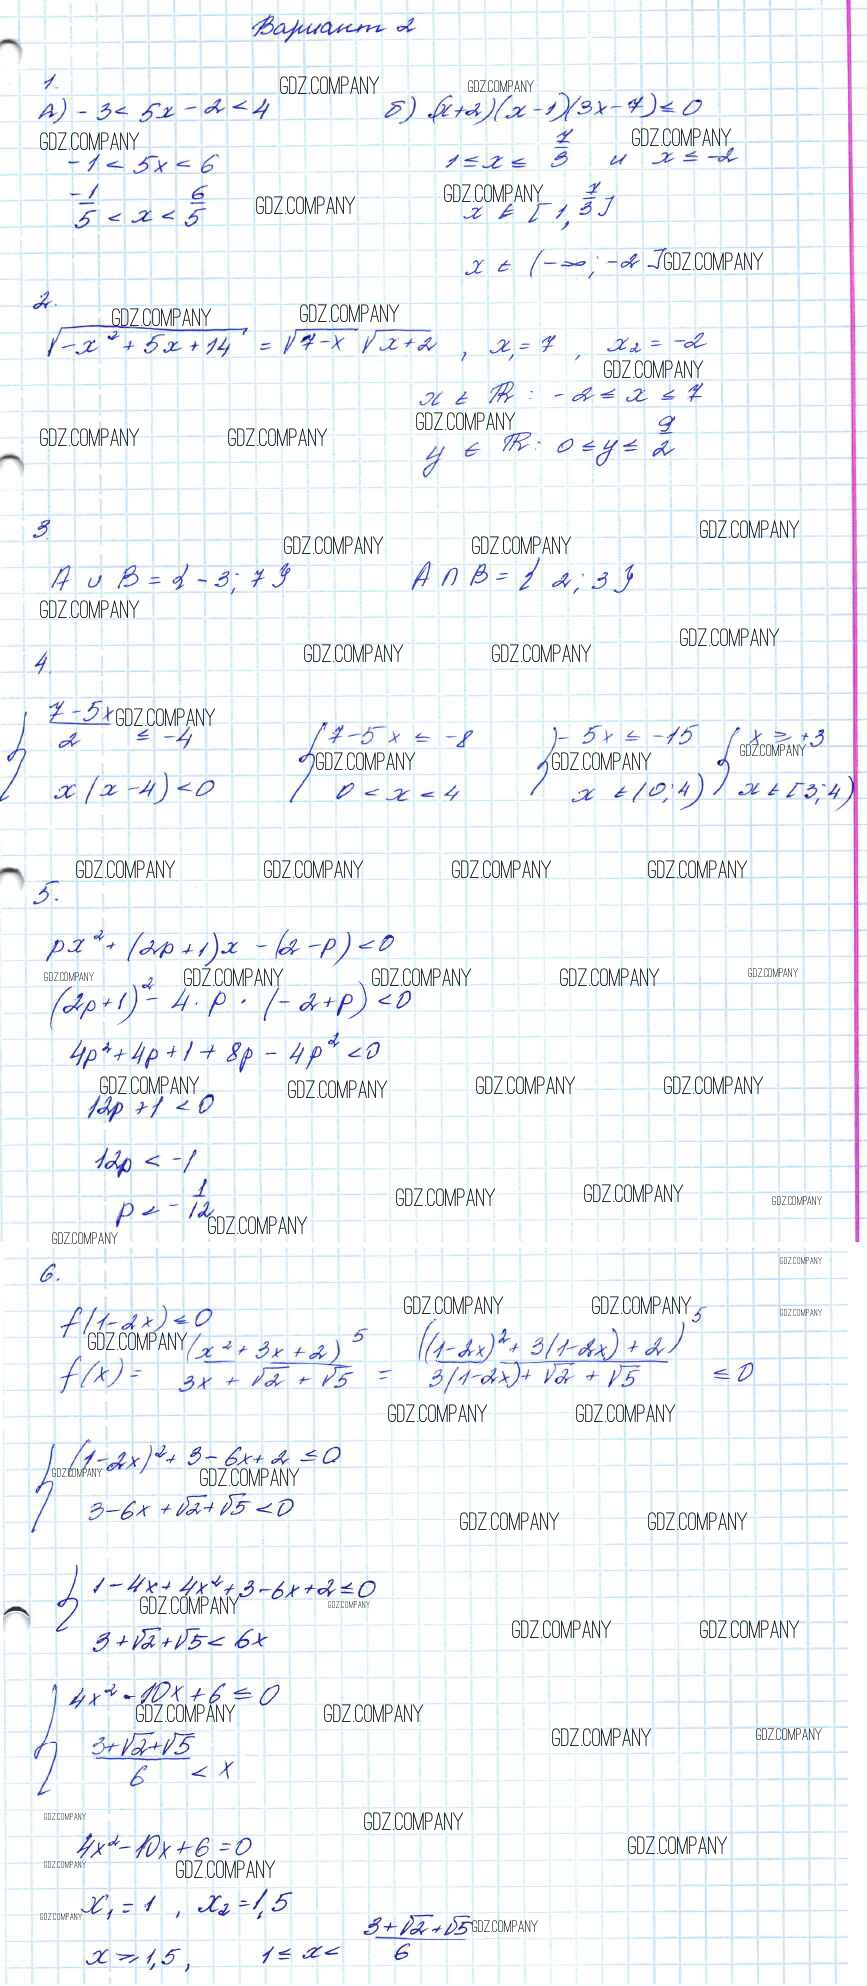 Вариант 2
1.
А) -3 < 5x - 2 < 4
-1 < 5x < 6
-1/5 < x < 6/5
б) (x+2)(x-1)(3x-7) ≤ 0
1 ≤ x ≤ 7/3 и x ≤ -2
x ∈ [1, 7/3]
x ∈ (-∞; -2]
2.
√(-x² + 5x + 14) = √(7-x) √(x+2), x₁ = 7, x₂ = -2
x ∈ ℝ: -2 ≤ x ≤ 7
y ∈ ℝ: 0 ≤ y ≤ 9/2
3
A ∪ B = {-3; 7} A ∩ B = {2; 3}
4.
{ (7-5x)/2 ≤ -4 { 7-5x ≤ -8 { -5x ≤ -15 { x ≥ +3
x(x-4) < 0 0 < x < 4 x ∈ (0; 4) x ∈ [3; 4)
5.
px² + (2p+1)x - (2-p) < 0
(2p+1)² - 4·p·(-2+p) < 0
4p² + 4p + 1 + 8p - 4p² < 0
12p + 1 < 0
12p < -1
p < -1/12
6.
f(1-2x) ≤ 0
f(x) = (x²+3x+2)⁵/(3x+√2+√5) = ((1-2x)²+3(1-2x)+2)⁵/(3(1-2x)+√2+√5) ≤ 0
{ (1-2x)² + 3 - 6x + 2 ≤ 0
3 - 6x + √2 + √5 < 0
{ 1 - 4x + 4x² + 3 - 6x + 2 ≤ 0
3 + √2 + √5 < 6x
{ 4x² - 10x + 6 ≤ 0
(3+√2+√5)/6 < x
4x² - 10x + 6 = 0
x₁ = 1, x₂ = 1,5
x ≥ 1,5, 1 ≤ x < (3+√2+√5)/6
GDZ.COMPANY